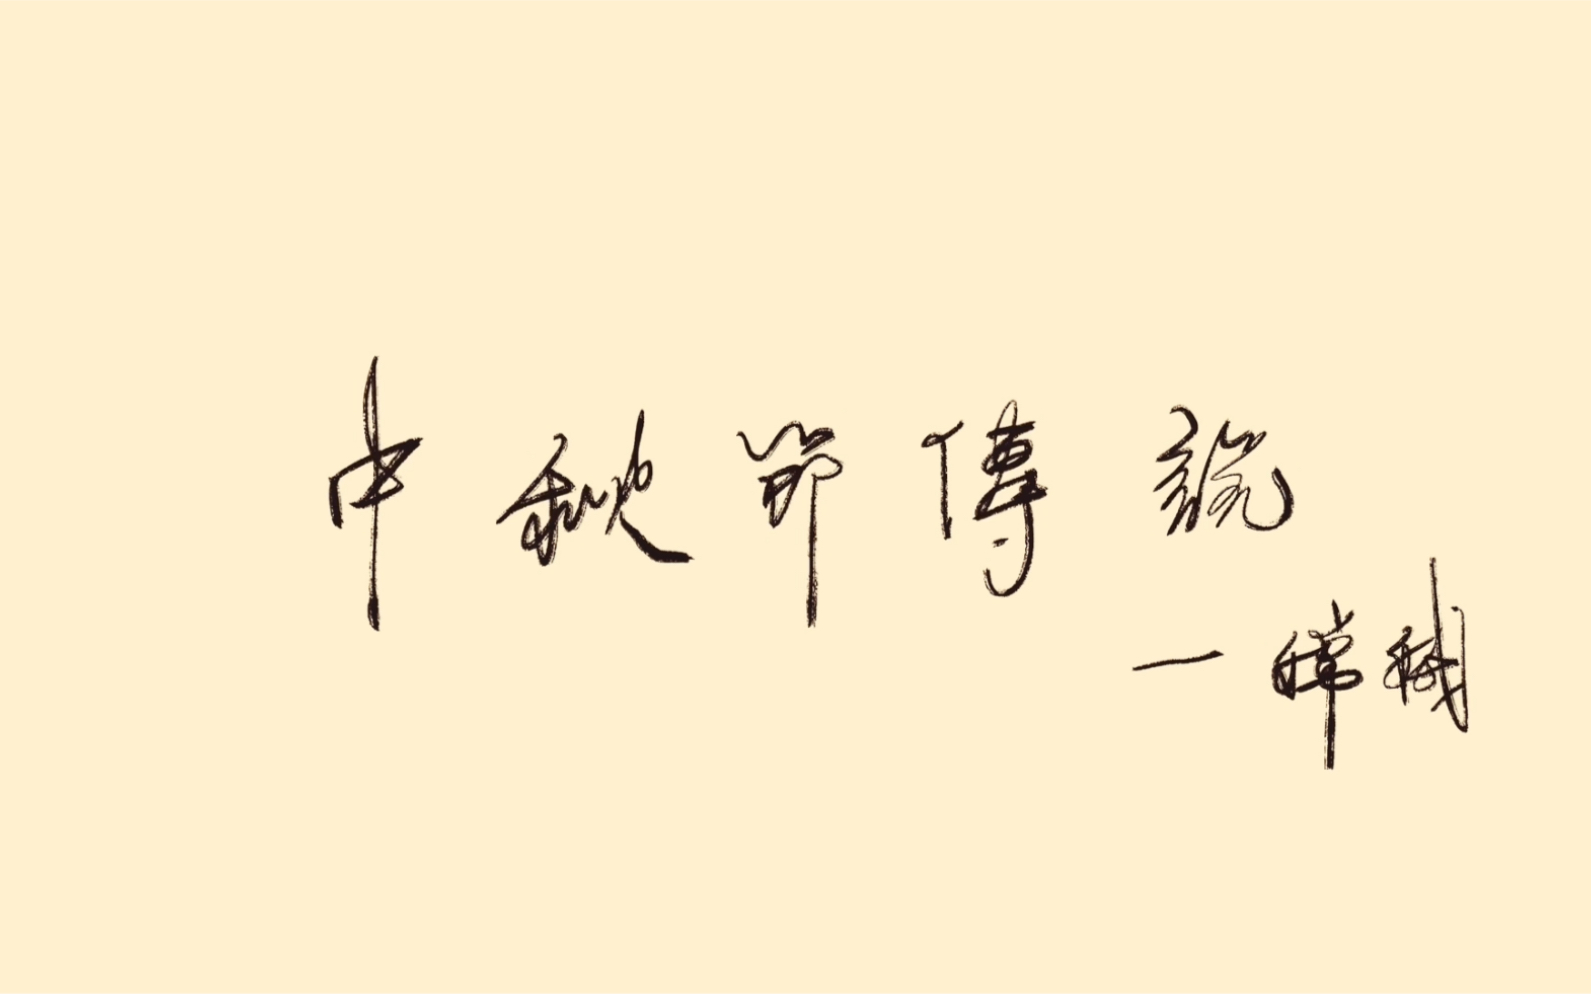 中秋節傳說
一嫦娥